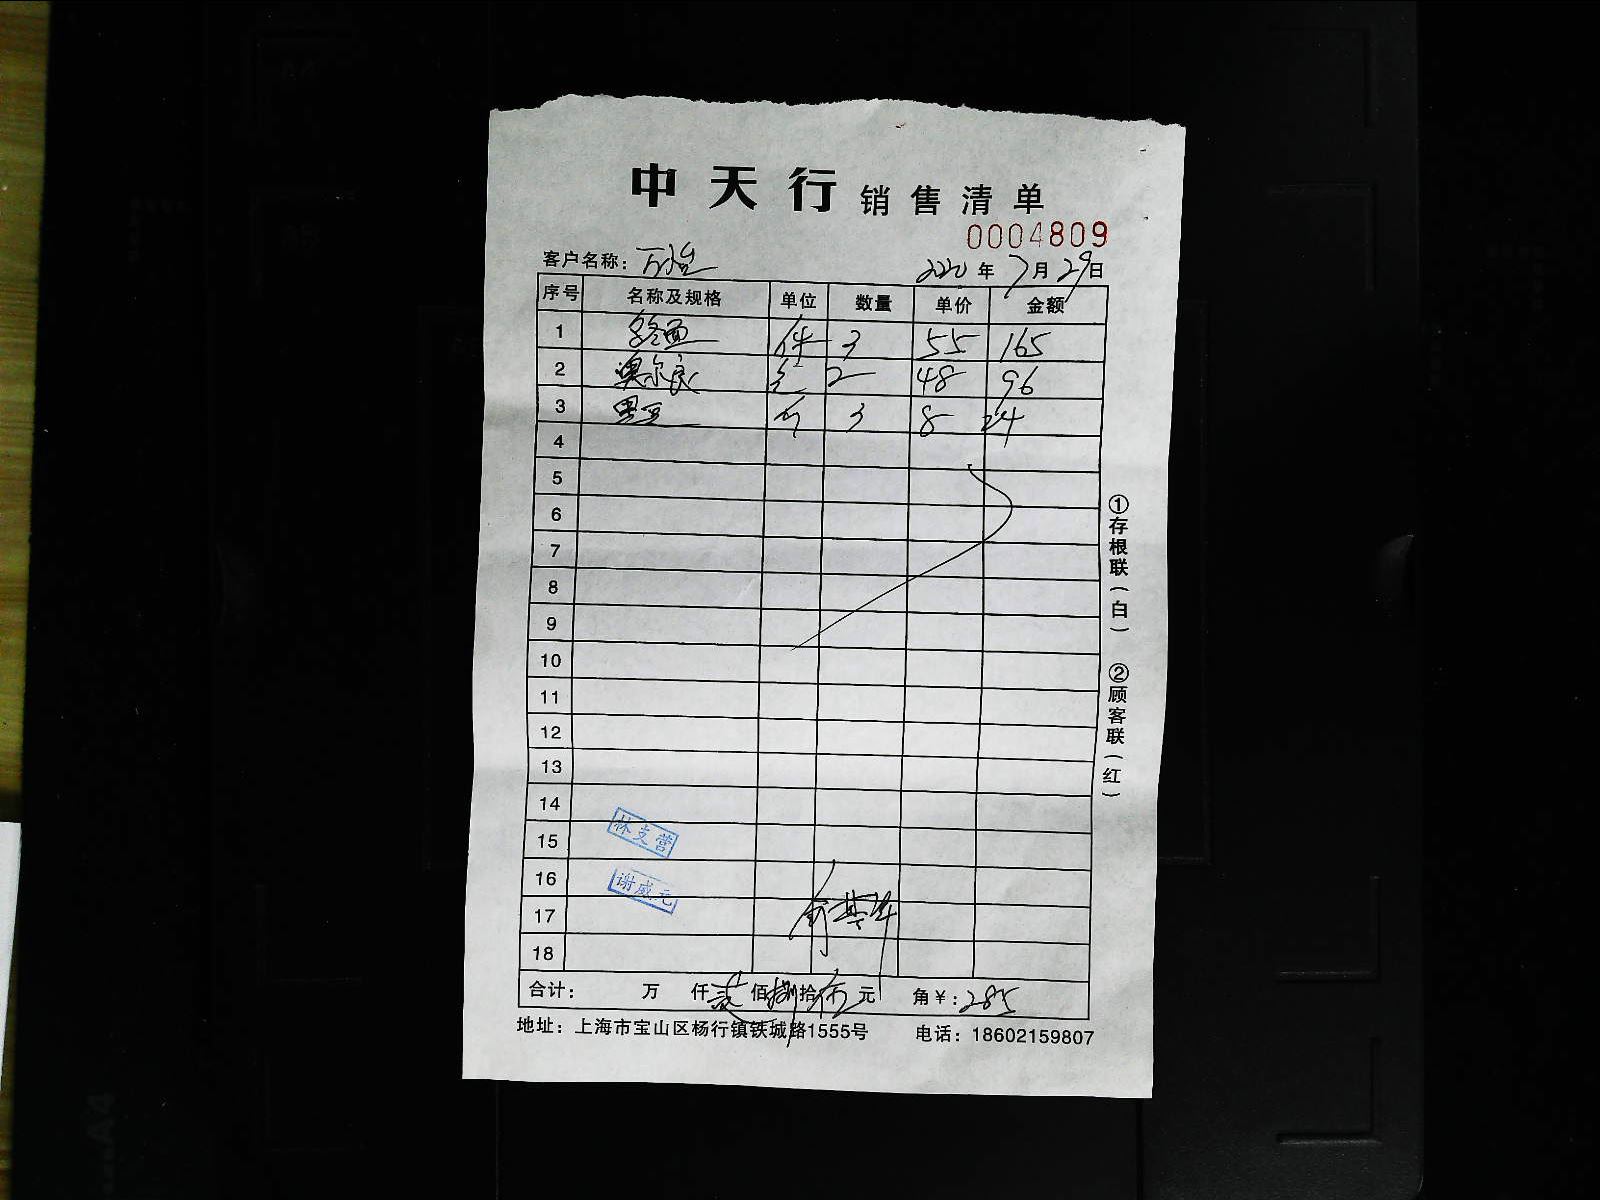 中天行 销售清单
0004809
客户名称: 万怡 2020 年 7 月 29 日
序号 名称及规格 单位 数量 单价 金额
1 件 3 55 165
2 奥尔良 包 2 48 96
3 3 8 24
4
5
6
7
8
9
10
11
12
13
14
15 林支营
16 谢威元
17
18
合计: 万 仟 贰 佰 捌 拾 伍 元 角¥: 285
地址: 上海市宝山区杨行镇铁城路1555号 电话: 18602159807
①存根联(白) ②顾客联(红)